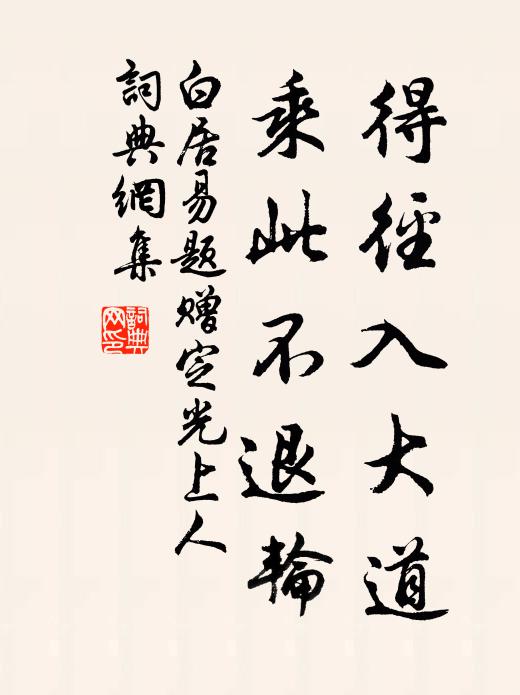 得徑入大道
乘此不退輪
白居易題贈定光上人
詞典網集
詞典网印